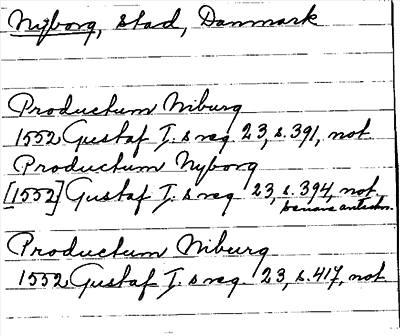 Nyborg, stad, Danmark
Productum Niburg
1552 Gustaf I. s reg. 23, s. 391, not.
Productum Nyborg
[1552] Gustaf I. s reg. 23, s. 394, not.
senare anteckn.
Productum Niburg
1552 Gustaf I. s reg. 23, s. 417, not.